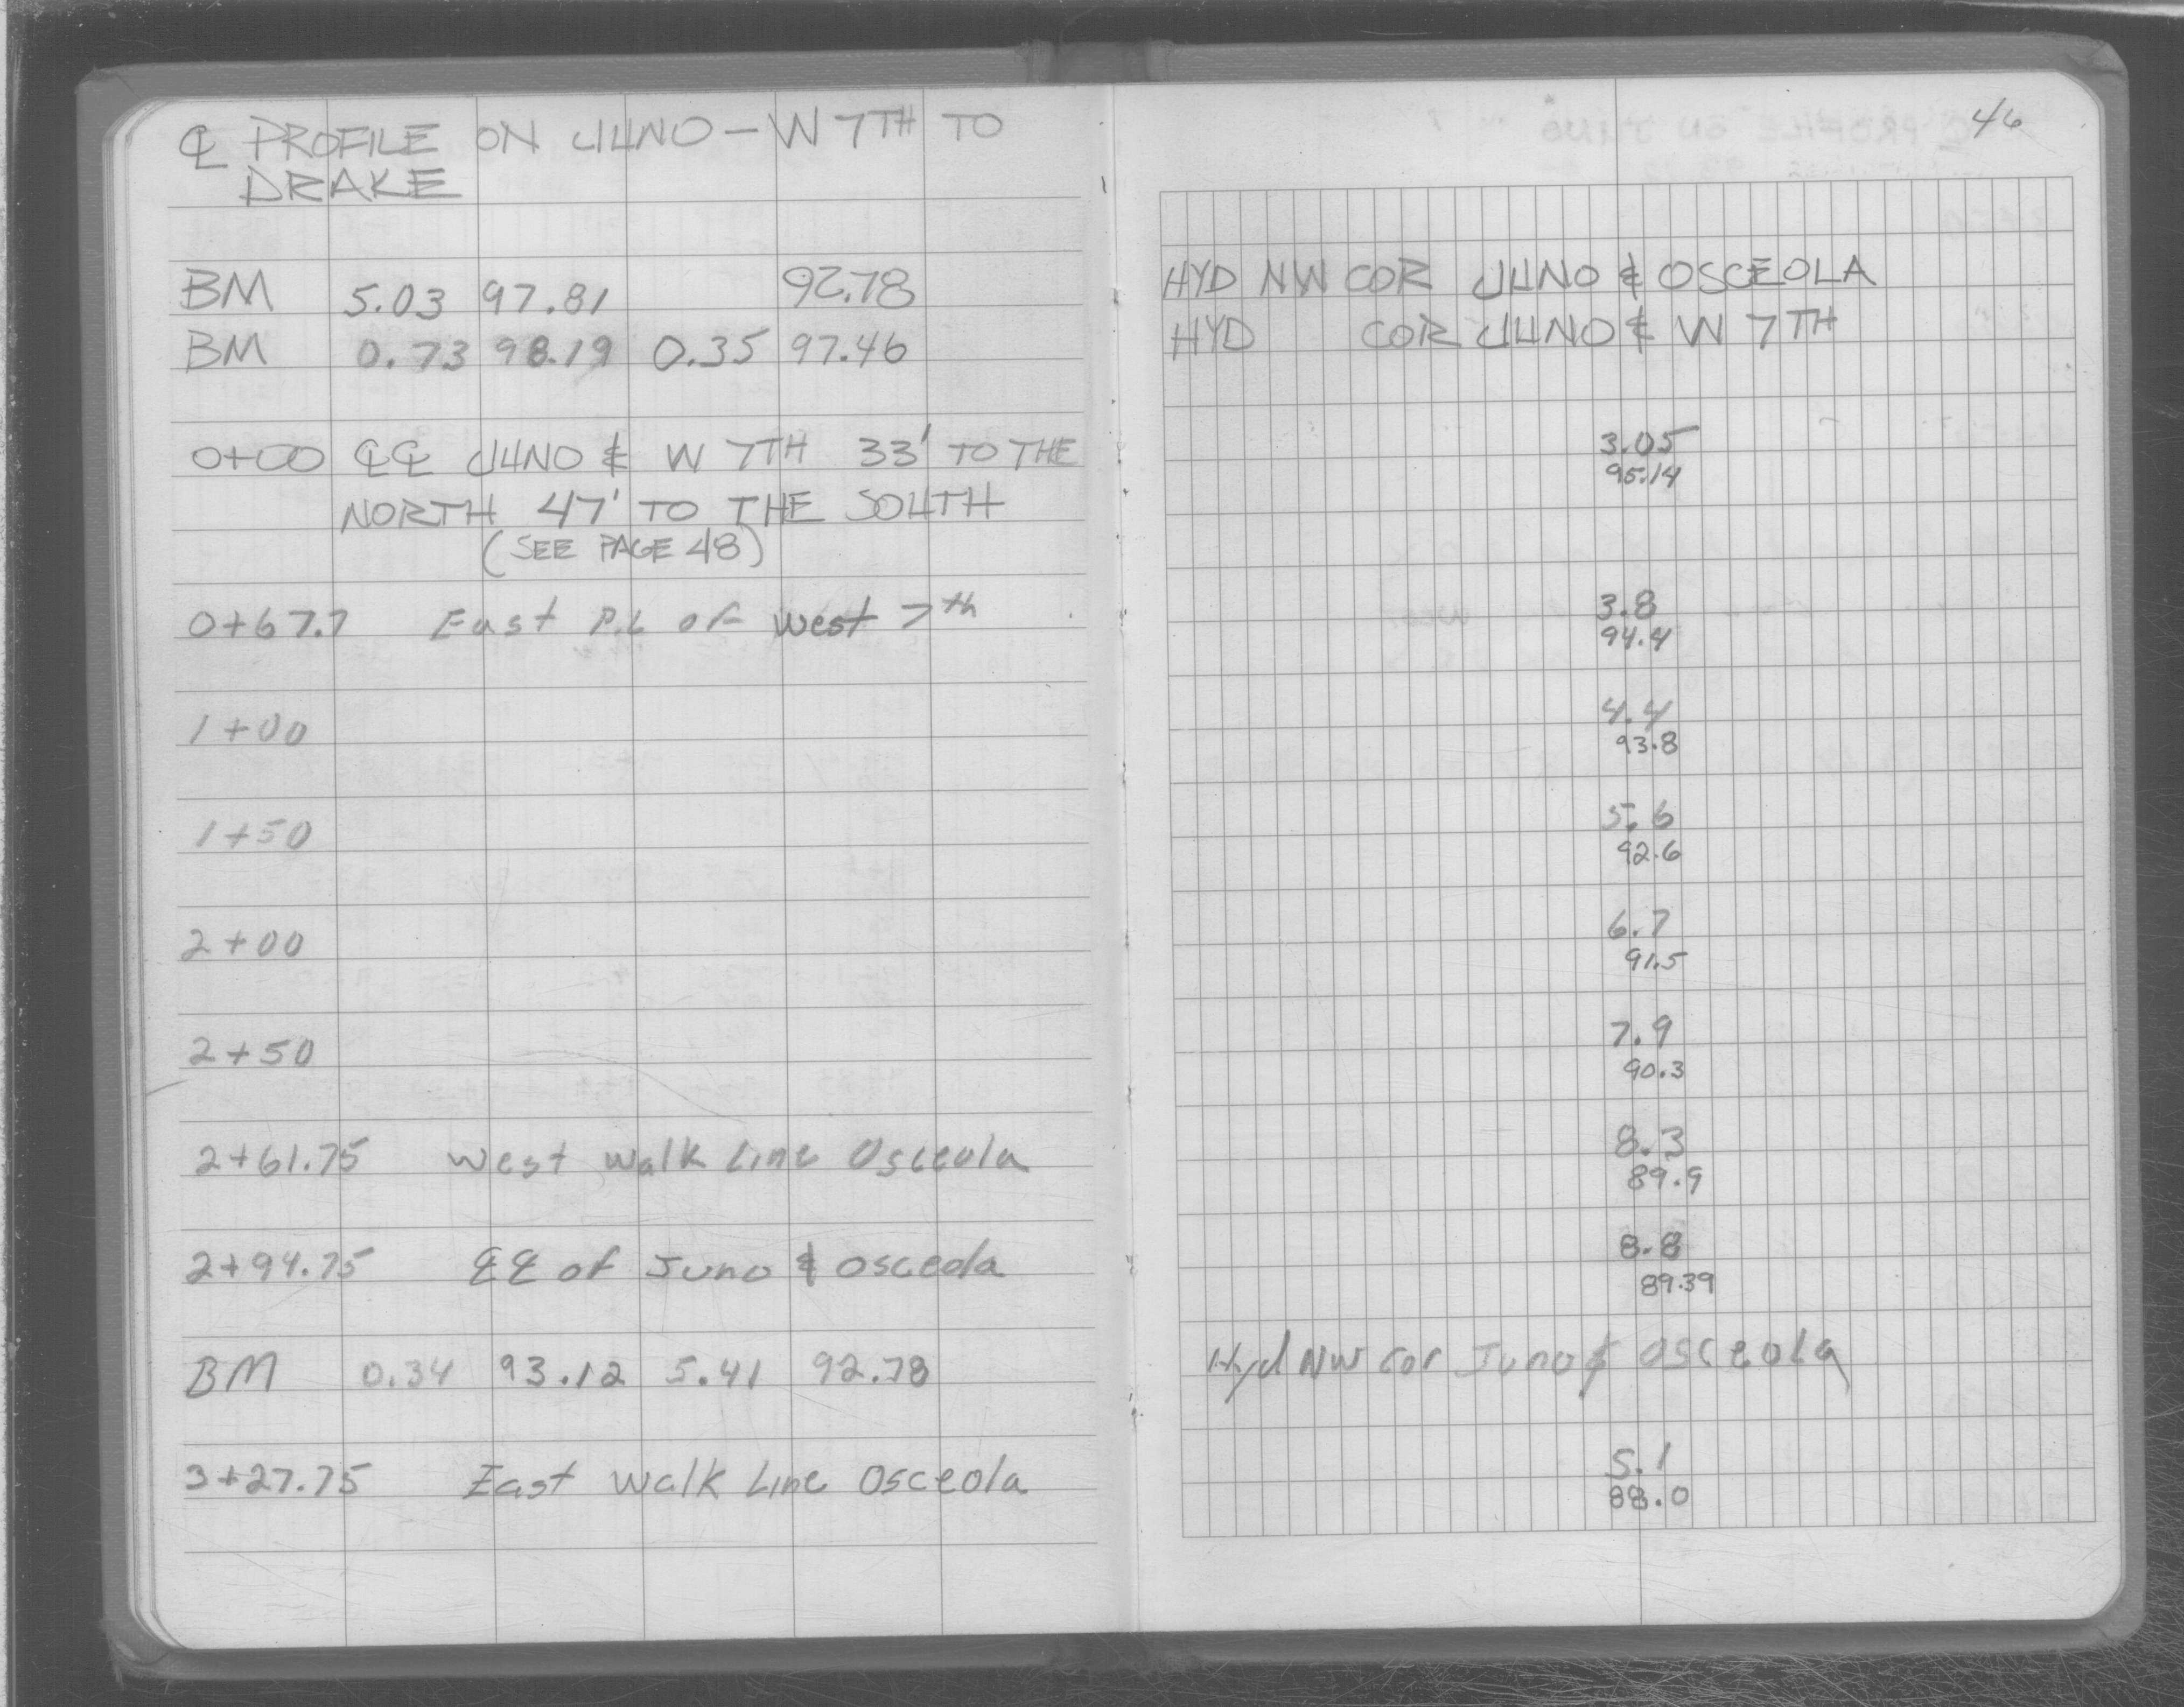 ℄ PROFILE ON JUNO - W 7TH TO
DRAKE
BM 5.03 97.81 92.78
BM 0.73 98.19 0.35 97.46
0+00 ℄℄ JUNO & W 7TH 33' TO THE
NORTH 47' TO THE SOUTH
(SEE PAGE 48)
0+67.7 East P.L of West 7th
1+00
1+50
2+00
2+50
2+61.75 West Walk Line Osceola
2+94.75 ℄℄ of Juno & Osceola
BM 0.34 93.12 5.41 92.78
3+27.75 East Walk Line Osceola
46
HYD NW COR JUNO & OSCEOLA
HYD COR JUNO & W 7TH
3.05
95.14
3.8
94.4
4.4
93.8
5.6
92.6
6.7
91.5
7.9
90.3
8.3
89.9
8.8
89.39
Hyd NW Cor Juno & Osceola
5.1
88.0